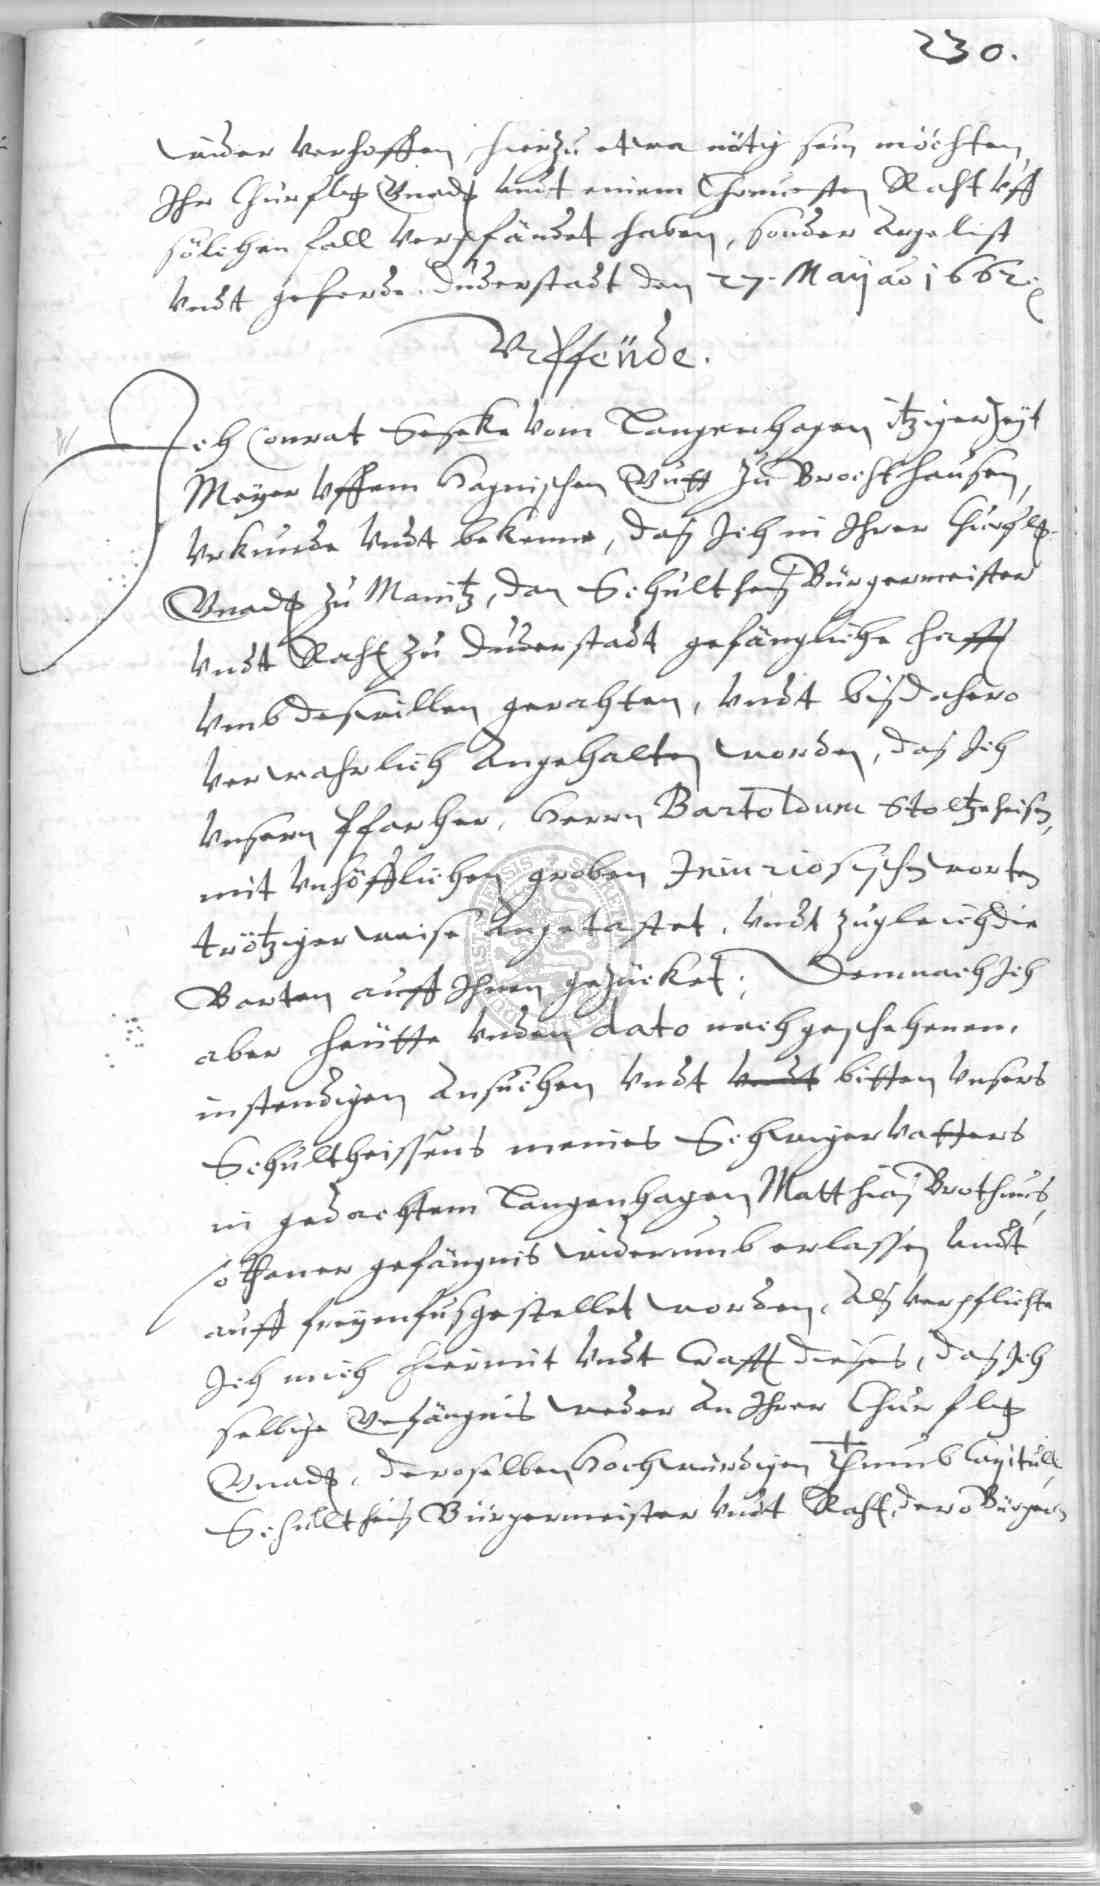 230.
wider verhoffen, hierzu etwa nötig sein möchten
Ihr Churflg Gnadg undt einem Ehrnvesten Raht uff
sölichen fall verpfändet haben, sonder Argelist
undt geferde. Duderstadt den 27. Maÿ ao 1662.
Urffeüde.
Ich Conrat Seseke vom Langenhagen itziger Zeÿt
Meÿer uffem Hagnischen Gutt zu Brochthausen,
Urkunde undt bekenne, daß Ich in Ihrer Churflg.
Gnadg zu Maintz, den Schultheiß Bürgermeister
undt Raht zu Duderstadt gefängliche hafft
umb deswillen gerahten, undt bis dahero
verwahrlich Angehalten worden, daß Ich
Unsern Pfarher, Herrn Bartoldum Stoltzeheisn,
mit unhöfflichen groben Iniuriosischen worten
trötziger weise Angetastet, undt zugleich die
Barten auff Ihnen gezücket; Demnach Ich
aber heütte unden dato nach geschehenen,
instendigen Ansuchen undt undt bitten unsers
Schultheissens meines Schwiger Vatters
in gedachtem Langenhagen Matthiaß Brothuns,
sothaner gefängnis widerumb erlassen undt
auff freÿen fus gestellet worden, Alß verpflichte
Ich mich hiermit undt Crafft dieses, daß Ich
selbige Gefängnis weder An Ihrer Churflg
Gnadg, deroselben Hochwürdigen Thumb Capitull
Schultheiß Bürgermeister undt Raht, dero Bürgern